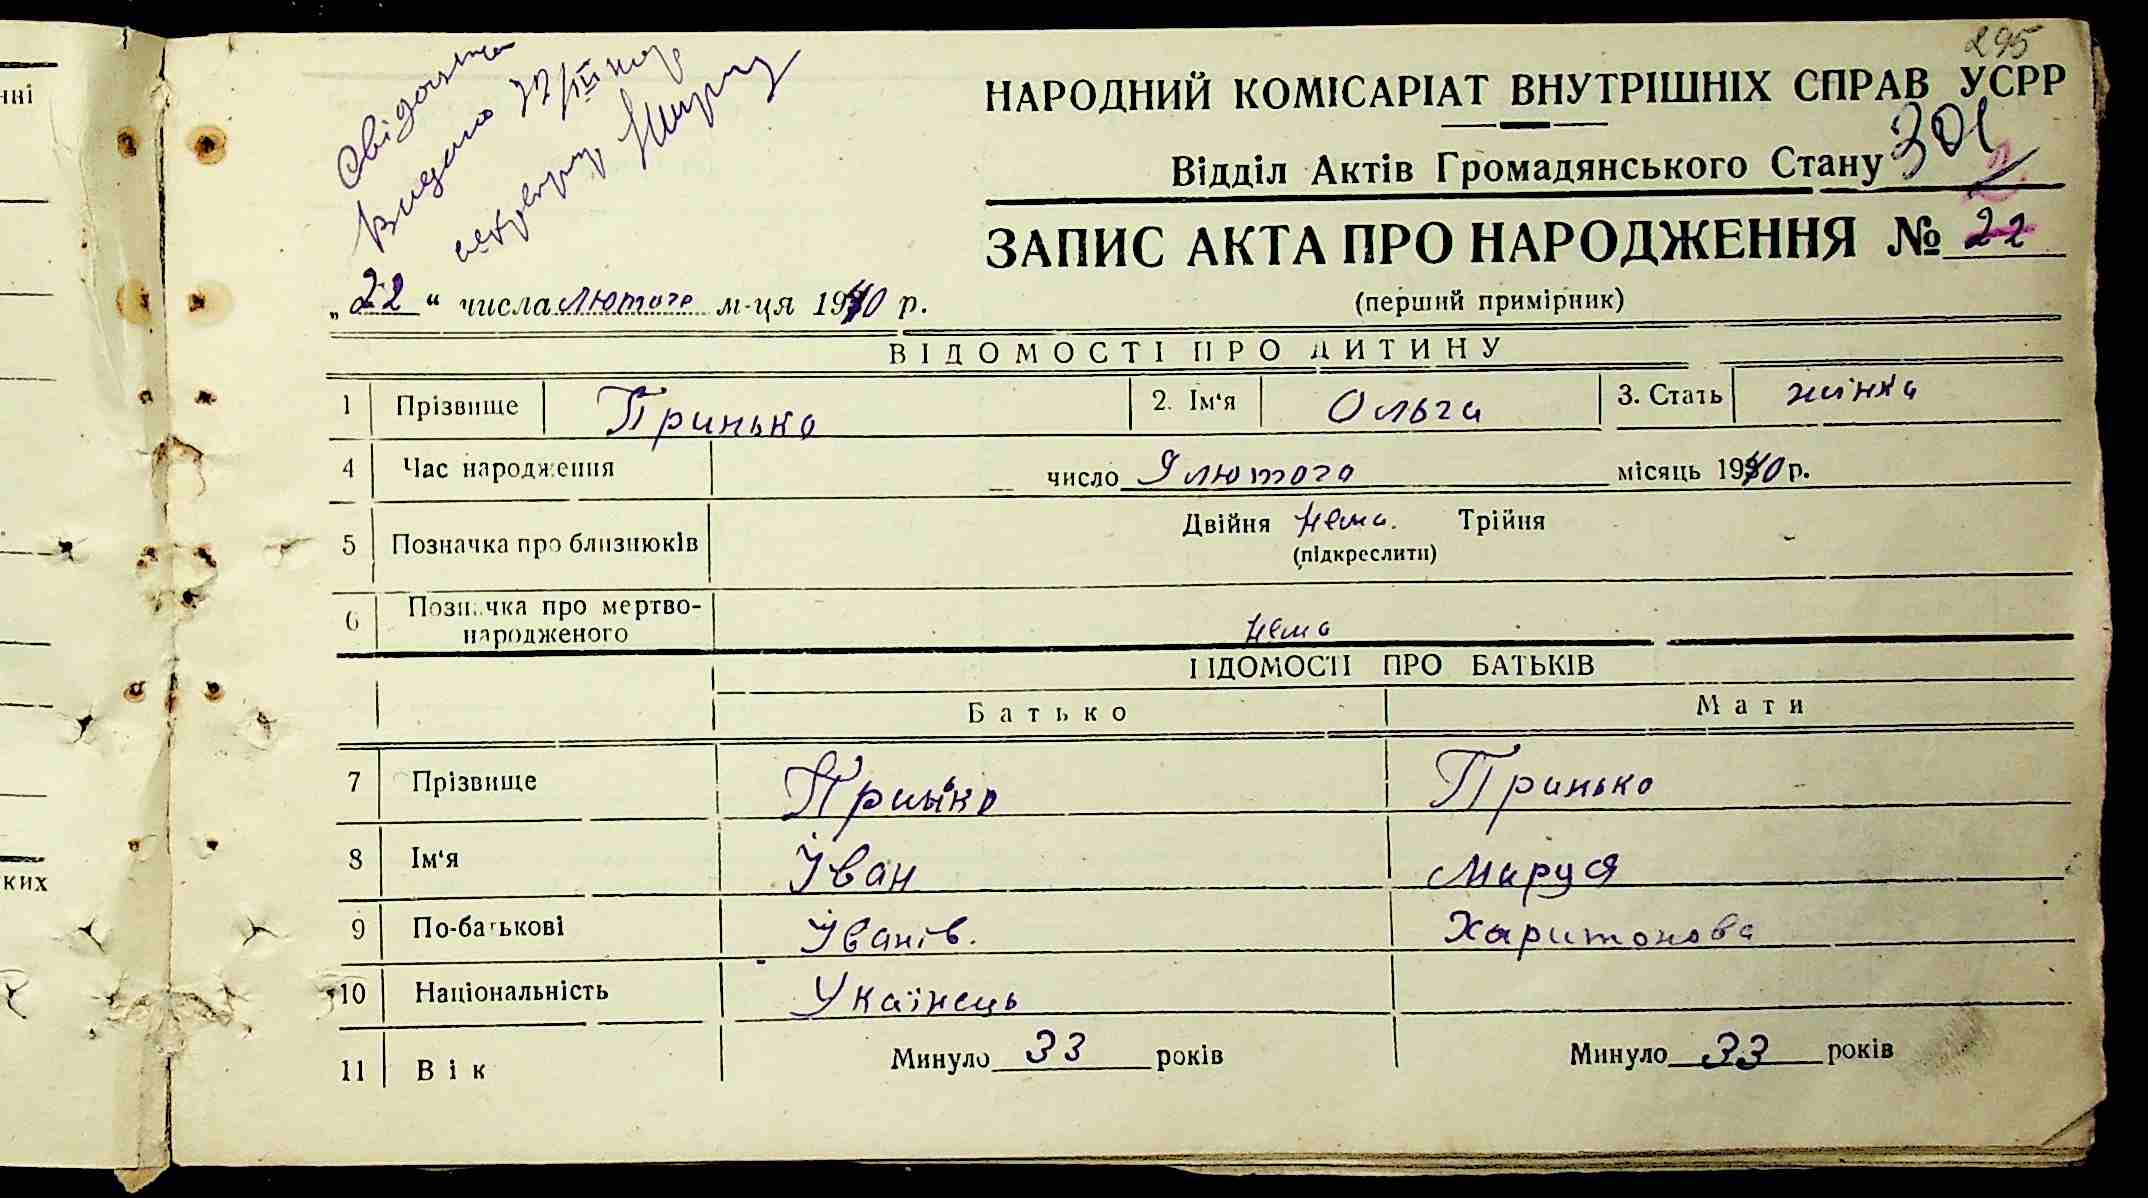 нні
ких
295
Свідоцтво
Видано
НАРОДНИЙ КОМІСАРІАТ ВНУТРІШНІХ СПРАВ УСРР
Відділ Актів Громадянського Стану 301
2
ЗАПИС АКТА ПРО НАРОДЖЕННЯ № 22
„22“ числа лютого м-ця 1940 р.
(перший примірник)
ВІДОМОСТІ ПРО ДИТИНУ
1 Прізвище Принько 2. Ім'я Ольга 3. Стать жінка
4 Час народження число 9 лютого місяць 1940 р.
5 Позначка про близнюків Двійня нема. Трійня
(підкреслити)
6 Позначка про мертво-
народженого нема
ВІДОМОСТІ ПРО БАТЬКІВ
Батько Мати
7 Прізвище Принько Принько
8 Ім'я Іван Маруся
9 По-батькові Іванів. Харитонова
10 Національність Укаїнець
11 Вік Минуло 33 років Минуло 33 років